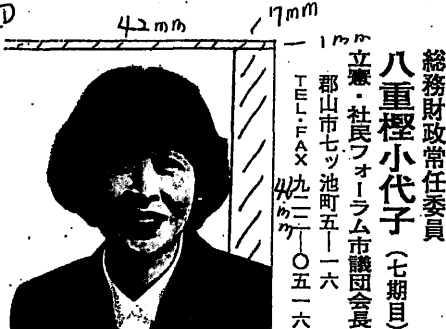 総務財政常任委員
八重樫小代子（七期目）
立憲・社民フォーラム市議団会長
郡山市七ッ池町五ー一六
TEL・FAX 九二二ー〇五一六
42mm
7mm
1mm